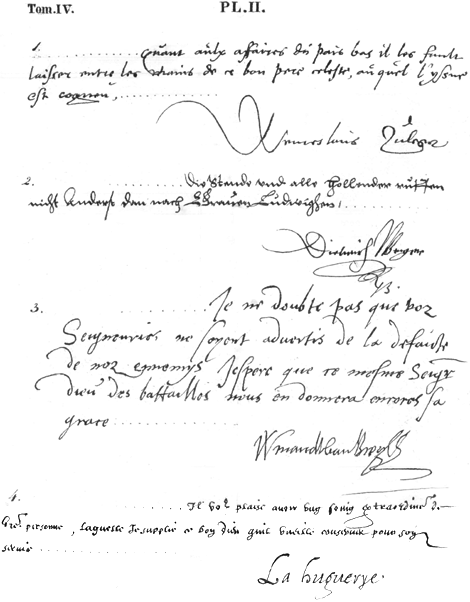 Tom.IV.
PL.II.
1. Quant aulx affaires du pais bas il les fault
laisser entre les mains de ce bon pere celeste, auquel l'yssue
est
Wenceslaus Zuleger
2. Die Stande und alle Hollender ruffen
nicht anders den nach Graven Ludwighen,
Dietrich
3. Je ne doubte pas que voz
Seigneuries ne soyent advertis de la defaicte
de noz ennemys Jespere que ce mesme Seigr
dieu des battailles nous en donnera encores sa
grace
4. Il vos plaise avoir ung soing extraordine. de
personne, laquelle Je supplie ce bon dieu quil vueille conserver pour son
service
La huguerye.